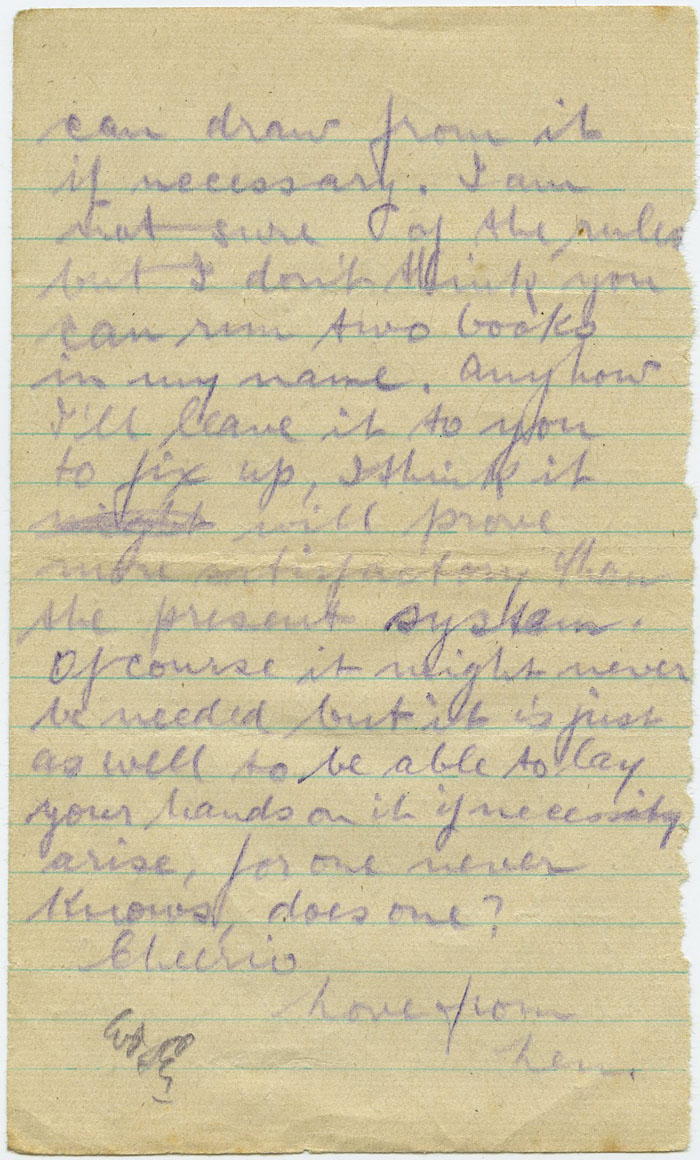 can draw from it
if necessary. I am
not sure of the rules
but I don't think you
can run two books
in my name. Anyhow
I'll leave it to you
to fix up, I think it
might will prove
more satisfactory than
the present system.
Of course it might never
be needed but it is just
as well to be able to lay
your hands on it if necessity
arise, for one never
knows, does one?
Cheerio
Love from
Len.